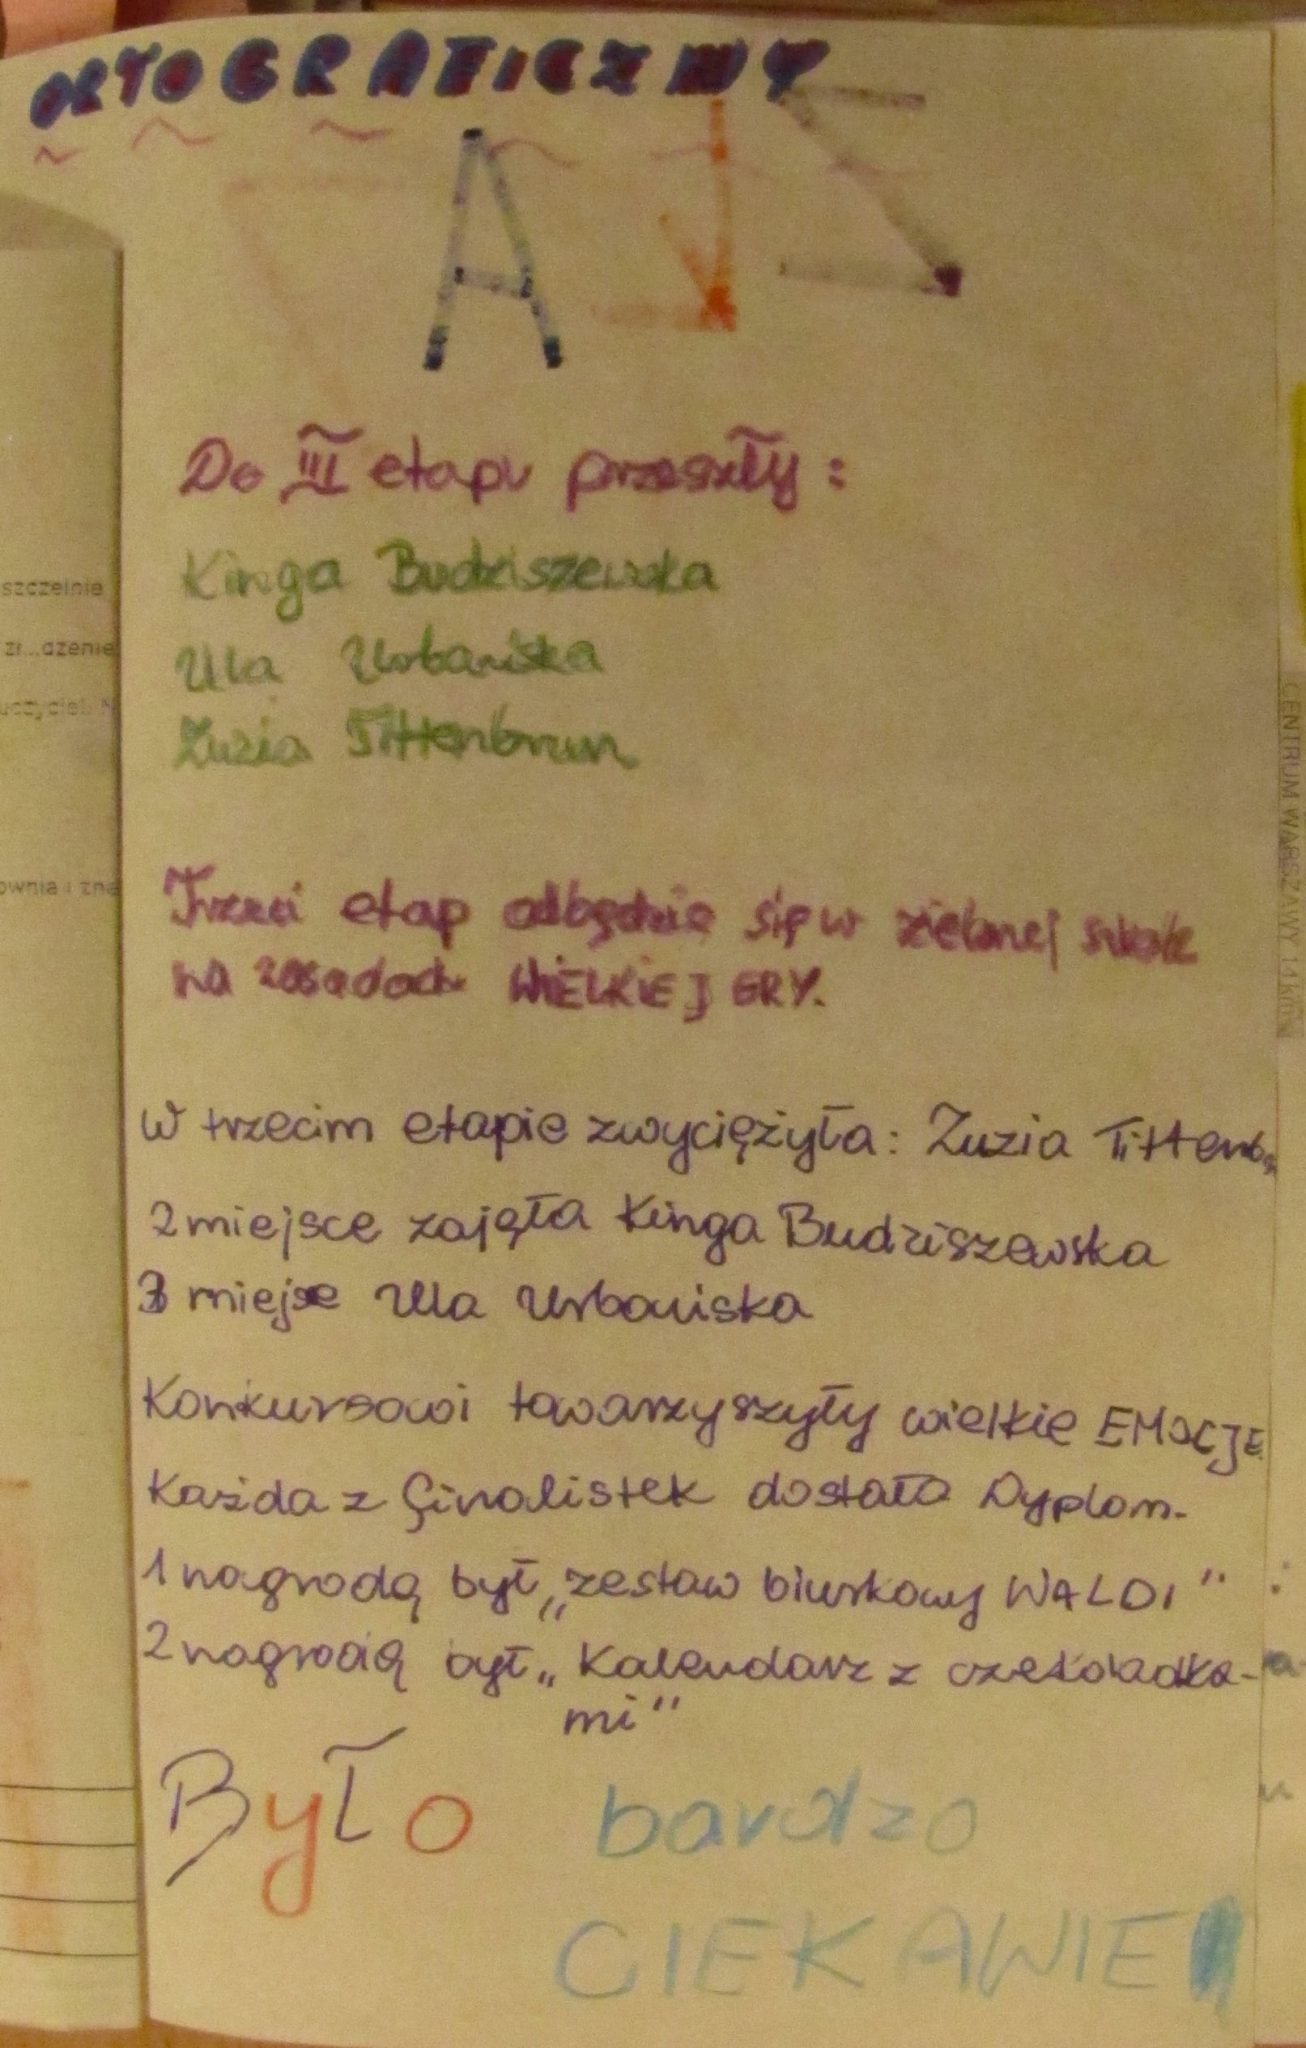 ORTOGRAFICZNY
Do III etapu przeszły:
Kinga Budziszewska
Ula Urbańska
Zuzia Tittenbrun
Trzeci etap odbędzie się w zielonej szkole
na zasadach WIELKIEJ GRY.
W trzecim etapie zwyciężyła: Zuzia Tittenb
2 miejsce zajęła Kinga Budziszewska
3 miejsce Ula Urbańska
Konkursowi towarzyszyły wielkie EMOCJE
Każda z finalistek dostała Dyplom.
1 nagrodą był „zestaw biurkowy WALDI"
2 nagrodą był „Kalendarz z czekoladka-
mi"
Było bardzo
CIEKAWIE
szczelnie
dzenie
ownia i zna
CENTRUM WARSZAWY 14 km